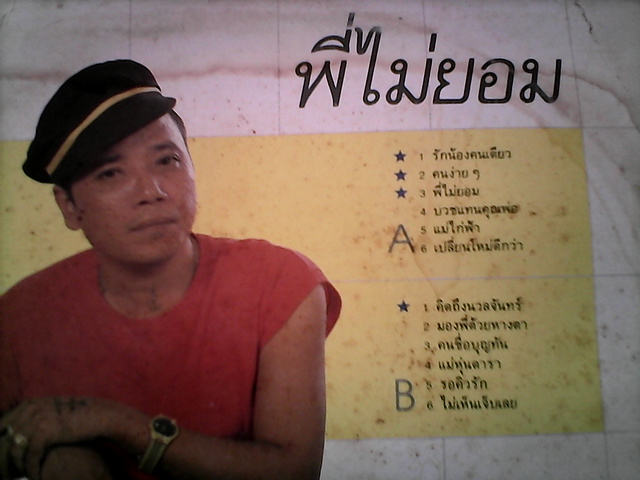 พี่ไม่ยอม
★ 1 รักน้องคนเดียว
★ 2 คนง่าย ๆ
★ 3 พี่ไม่ยอม
4 บวชแทนคุณพ่อ
A 5 แม่ไก่ฟ้า
6 เปลี่ยนใหม่ดีกว่า
★ 1 คิดถึงนวลจันทร์
2 มองพี่ด้วยหางตา
3 คนชื่อบุญทัน
4 แม่หุ่นดารา
B 5 รอคิวรัก
6 ไม่เห็นเจ็บเลย